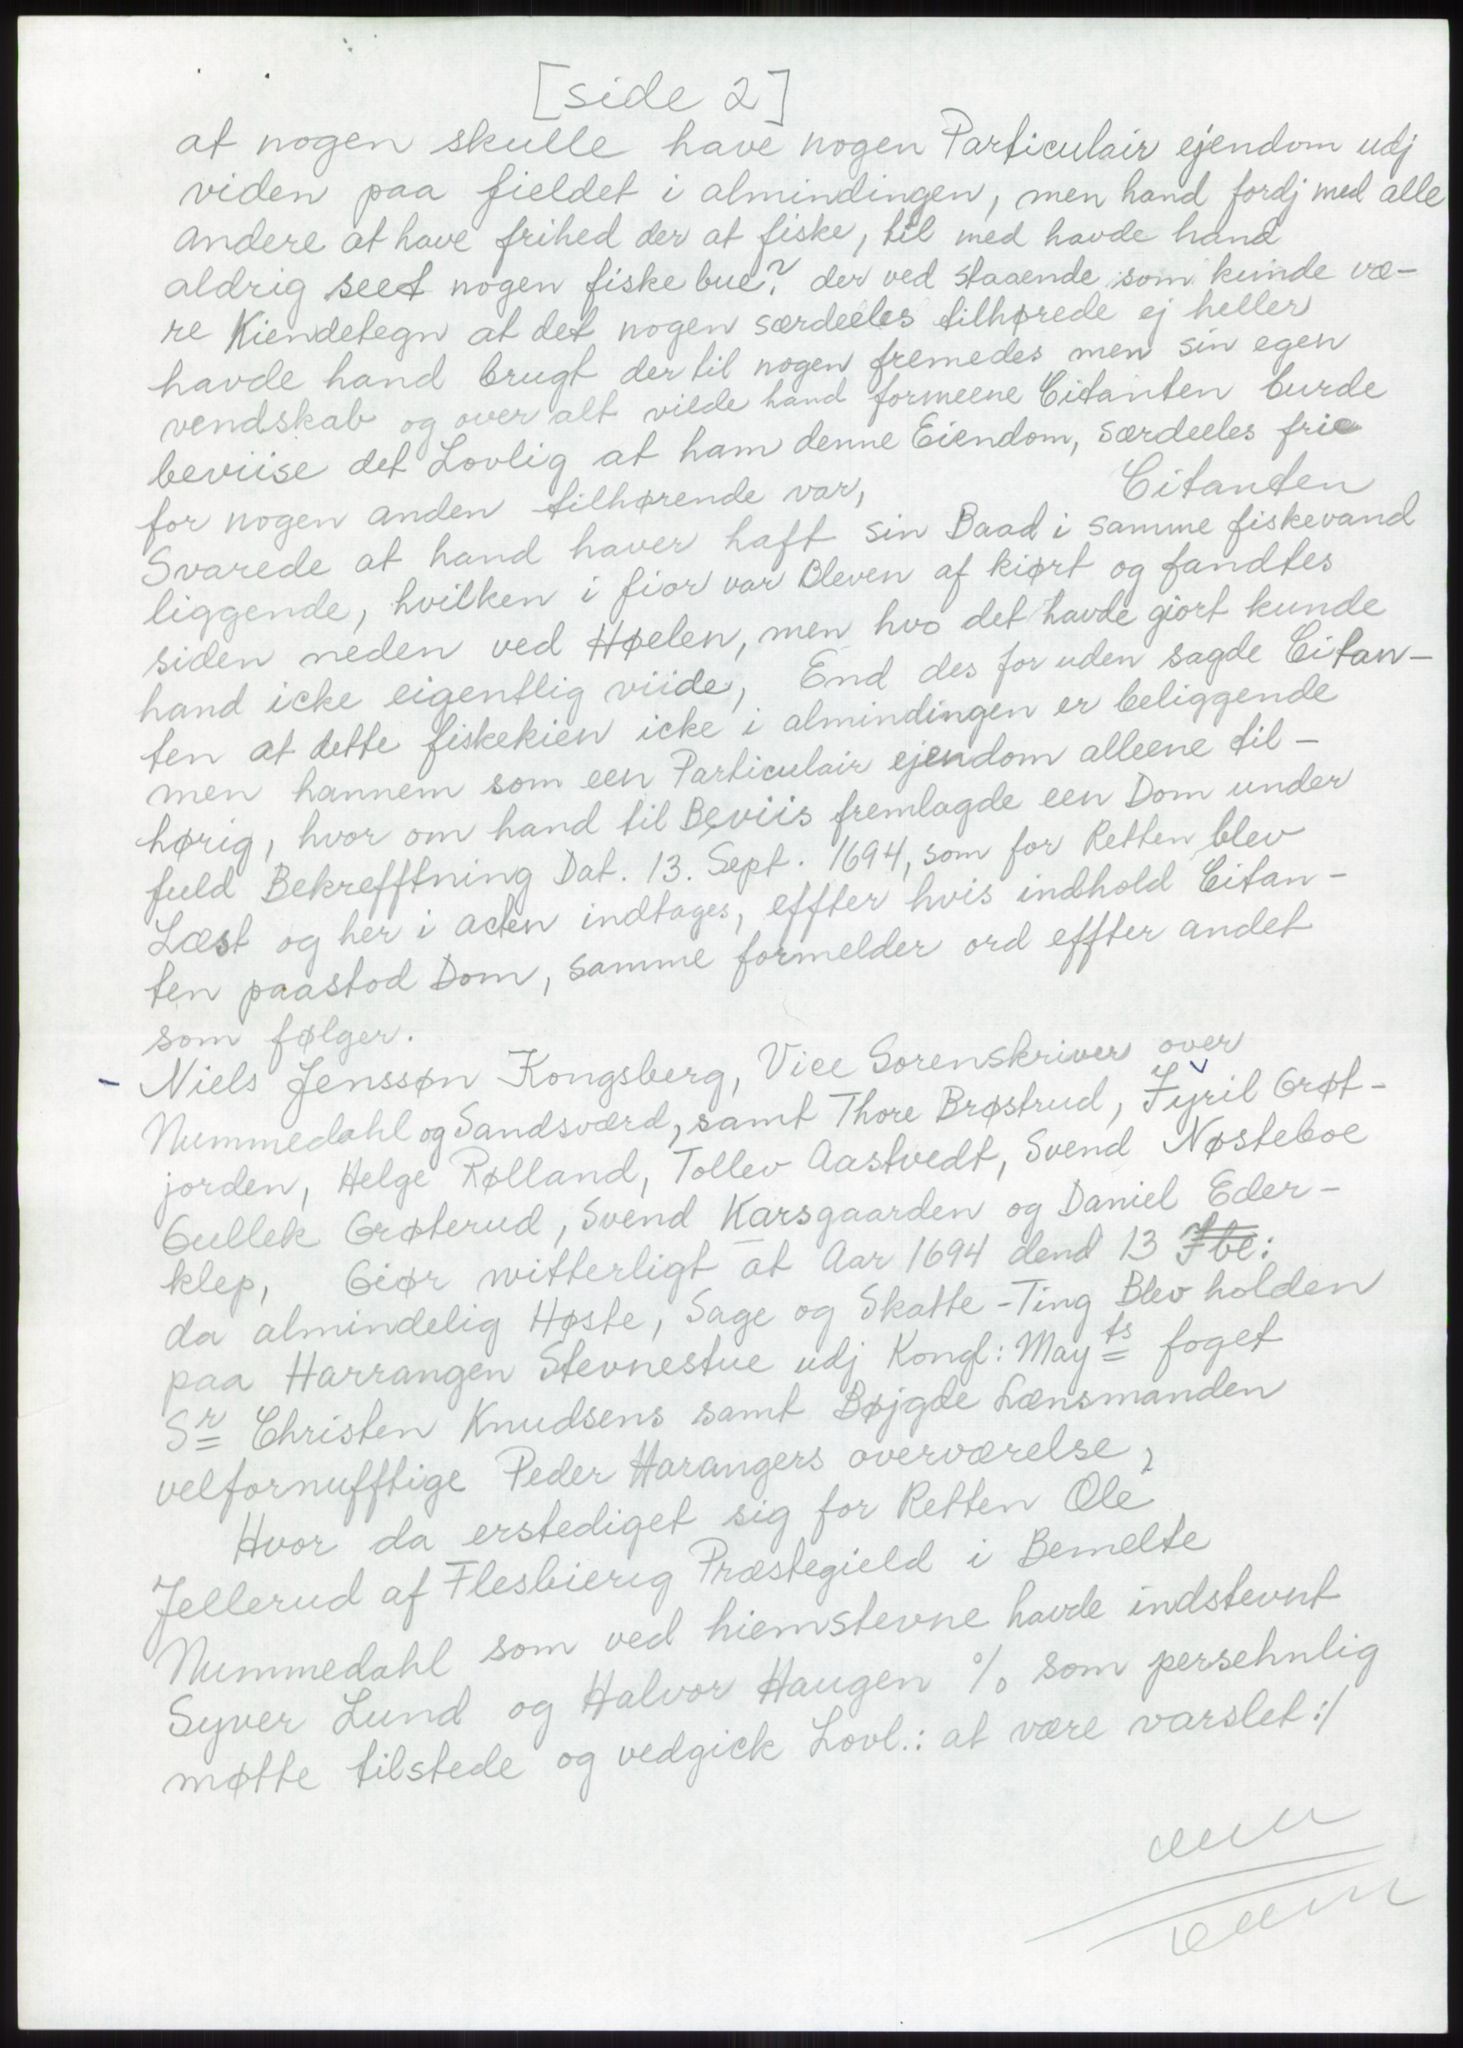 [side 2]
at nogen skulle have nogen Particulair ejendom udj
viden paa fieldet i almindingen, men hand fordj med alle
andere at have frihed der at fiske, til med havde hand
aldrig seet nogen fiske bue? der ved staaende som kunde væ-
re Kiendetegn at det nogen særdeeles tilhørede ej heller
havde hand brugt der til nogen fremedes men sin egen
vendskab og over alt vilde hand formeene Citanten burde
beviise det Lovlig at ham denne Eiendom, særdeeles frie
for nogen anden tilhørende var, Citanten
Svarede at hand haver haft sin Baad i samme fiskevand
liggende, hvilken i fior var Bleven af kiørt og fandtes
siden neden ved Høelen, men hvo det havde giort kunde
hand icke eigentlig viide, End des for uden sagde Citan-
ten at dette fiskekien icke i almindingen er beliggende
men hannem som een Particulair ejendom alleene til-
hørig, hvor om hand til Beviis fremlagde een Dom under
fuld Bekrefftning Dat. 13. Sept. 1694, som for Retten blev
Læst og her i acten indtages, effter hvis indhold Citan-
ten paastod Dom, samme formelder ord effter andet
som følger.
- Niels Jenssøn Kongsberg, Vice Sorenskriver over
Nummedahl og Sandsværd, samt Thore Brøstrud, Jyril Grøt-
jorden, Helge Rølland, Tollev Aastvedt, Svend Nøsteboe
Gullek Grøterud, Svend Karsgaarden og Daniel Eder-
klep, Giør witterligt at Aar 1694 dend 13 7be:
da almindelig Høste, Sage og Skatte-Ting Blev holden
paa Harrangen Stevnestue udj Kongl: May ts foget
Sr Christen Knudsens samt Bøjgde Lænsmanden
velfornufftige Peder Harangers overværelse,
Hvor da erstediget sig for Retten Ole
Jellerud af Flesbierig Præstegield i Bemelte
Nummedahl som ved hiemstevne havde indstevnt
Syver Lund og Halvor Haugen % som persehnlig
møtte tilstede og vedgick Lovl.: at være varslet :/